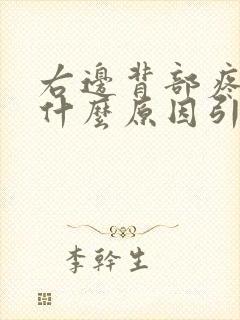 右邊背部疼
什麼原因引
李幹生